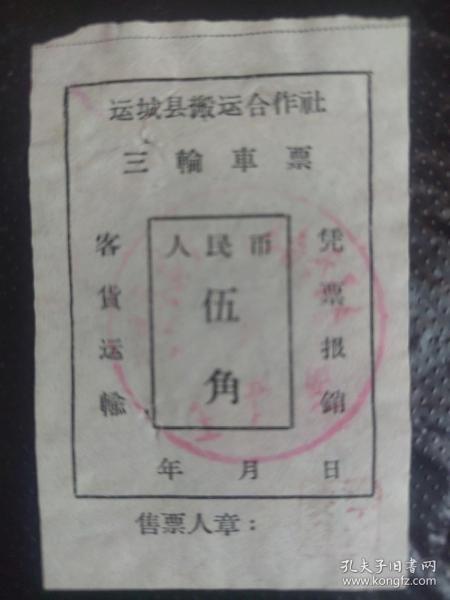 运城县搬运合作社
三輪車票
客貨运輸
人民币
伍角
凭票报銷
年 月 日
售票人章：
孔夫子旧书网
www.kongfz.com